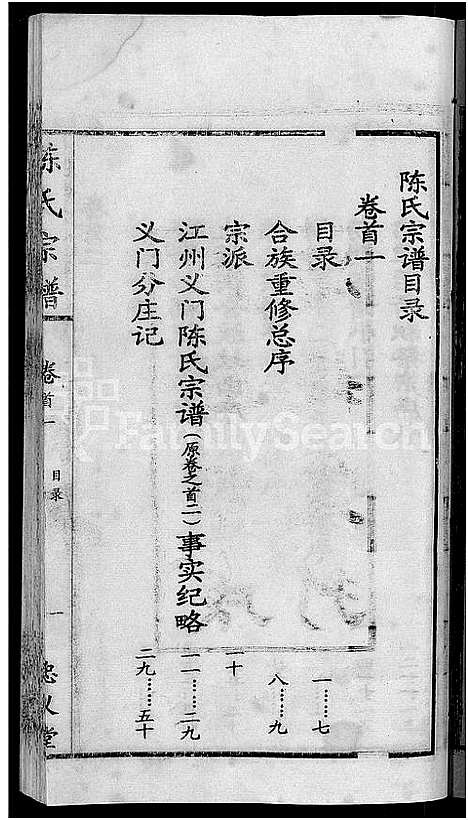 陈氏宗谱目录
卷首一
目录 一……七
合族重修总序 八……九
宗派 一十
江州义门陈氏宗谱(原卷之首二)事实纪略 一一……二九
义门分庄记 二九……五十
陈氏宗谱
卷首一
目录
一
忠义堂
FamilySearch